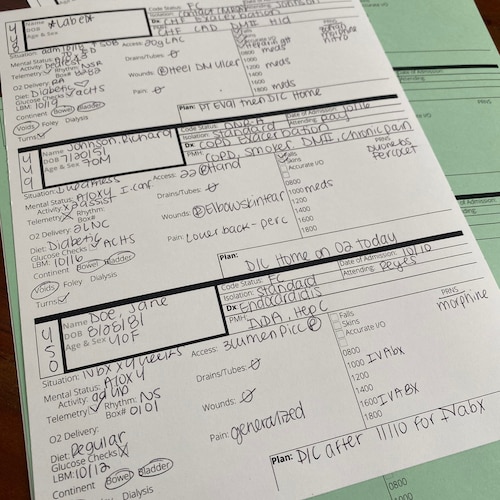 448
Name *Label*
DOB
Age & Sex
Code Status: FC
Dx CHF Exacerbation
PMH: CHF CAD
Situation: adm 10/16 SOB
Mental Status:
Activity
Telemetry✓ Rhythm: NSR
Box#
O2 Delivery: RA
Diet: Diabetic
Glucose Checks:✓ ACHS
LBM: 10/16
Continent Bowel Bladder
Voids Foley Dialysis
Turns✓
Access: 20g LAC
Drains/Tubes: Ø
Wounds: Heel DM ulcer
Pain: Ø
0800 meds
1000
1200
1400
1600
1800 meds
Plan: PT Eval then D/C Home
449
Name Johnson, Richard
DOB 7/20/51
Age & Sex 70M
Code Status: DNR-A
Date of Admission: 10/16
Isolation: Standard
Attending: Ray
Dx COPD Exacerbation
PMH: COPD, smoker, DMII, chronic pain
PRNS
Duonebs
Percocet
Situation:
Mental Status: A1OX4
Activity x2assist
Telemetry X Rhythm:
Box#
O2 Delivery: 2LNC
Diet: Diabetic
Glucose Checks:✓ ACHS
LBM: 10/16
Continent Bowel Bladder
Voids Foley Dialysis
Turns✓
Access: 22 Hand
Drains/Tubes: Ø
Wounds: Elbow skin tear
Pain: Lower back - perc
Falls
Skins
Accurate I/O
0800
1000 meds
1200
1400
1600
1800
Plan: D/C Home on O2 today
450
Name Doe, Jane
DOB 8/08/81
Age & Sex 40F
Code Status: FC
Date of Admission: 10/10
Isolation: Standard
Attending: Reyes
Dx Endocarditis
PMH: IVDA, Hep C
PRNS
morphine
Situation: IVbx x4 weeks
Mental Status: A1OX4
Activity: ad lib
Telemetry✓ Rhythm: NS
Box# 0101
O2 Delivery:
Diet: Regular
Glucose Checks: X
LBM: 10/12
Continent Bowel Bladder
Voids Foley Dialysis
Access: 3 lumen PICC
Drains/Tubes: Ø
Wounds: Ø
Pain: generalized
Falls
Skins
Accurate I/O
0800
1000 IVabx
1200
1400
1600 IVABX
1800
Plan: D/C after 11/10 for IVabx
Date of Admission:
Attending:
0800
1000
0400